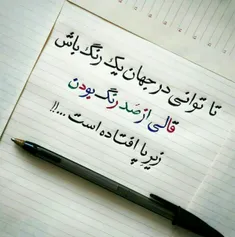 تا توانی در جهان یک رنگ باش
قالی از صد رنگ بودن
زیر پا افتاده است ...!!